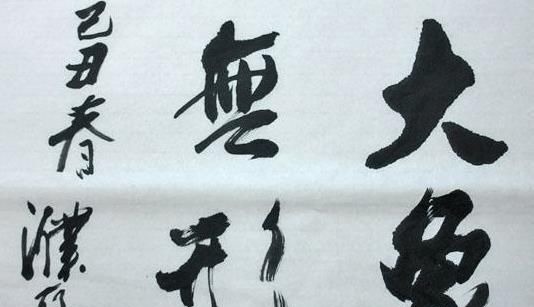 大象
無形
己丑春濮